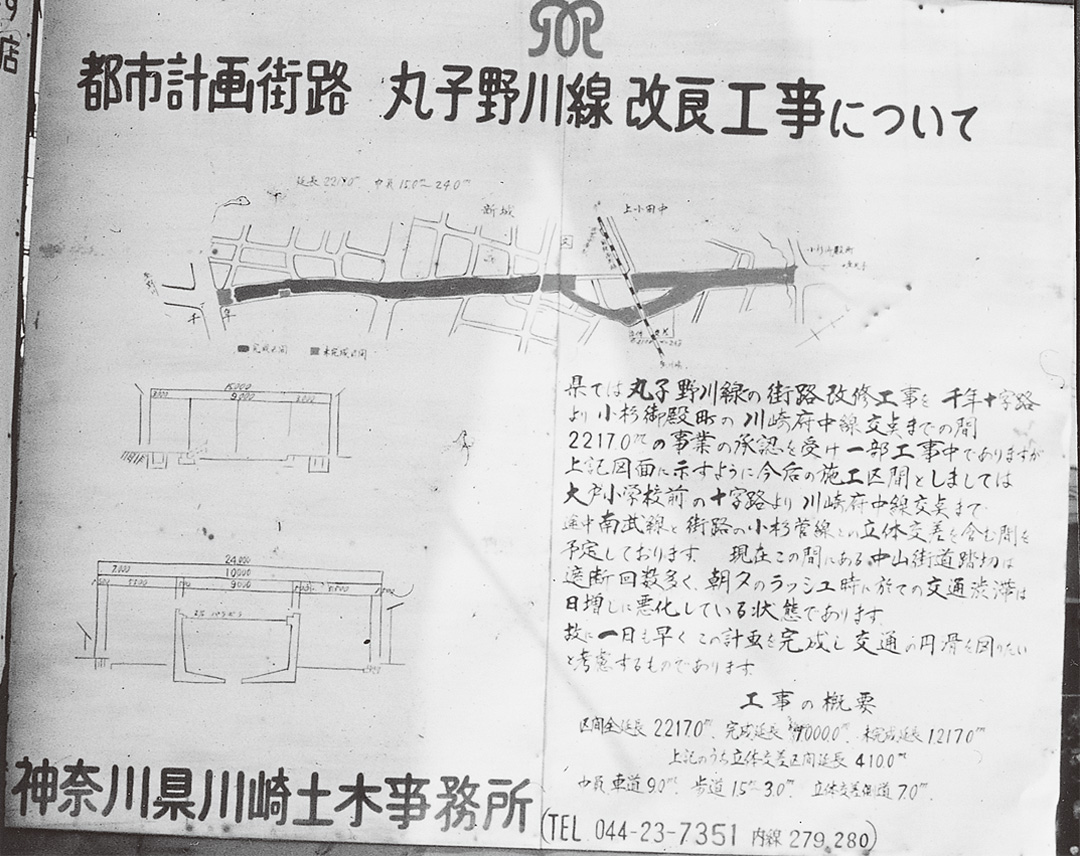 都市計画街路 丸子野川線改良工事について
延長2217.0m 巾員15.0m～24.0m
新城
上小田中
千年
完成区間 未完成区間
15.000
9.000
県では丸子野川線の街路改修工事を 千年十字路
より小杉御殿町の川崎府中線交点までの間
2217.0mの事業の承認を受け一部工事中でありますが
上記図面に示すように今后の施工区間としましては
大戸小学校前の十字路より川崎府中線交点まで
途中南武線と街路の小杉菅線との立体交差を含む間を
予定しております。 現在この間にある中山街道踏切は
遮断回数多く、朝夕のラッシュ時に於ての交通渋滞は
日増しに悪化している状態であります。
故に一日も早くこの計画を完成し交通の円滑を図りたい
と考慮するものであります。
24.000
10.000
9.000
工事の概要
区間全延長2217.0m. 完成延長 1000.0m. 未完成延長1217.0m
上記のうち立体交差区間延長 410.0m
巾員 車道9.0m. 歩道1.5m～3.0m. 立体交差側道7.0m.
神奈川県川崎土木事務所
(TEL 044-23-7351 内線279,280)